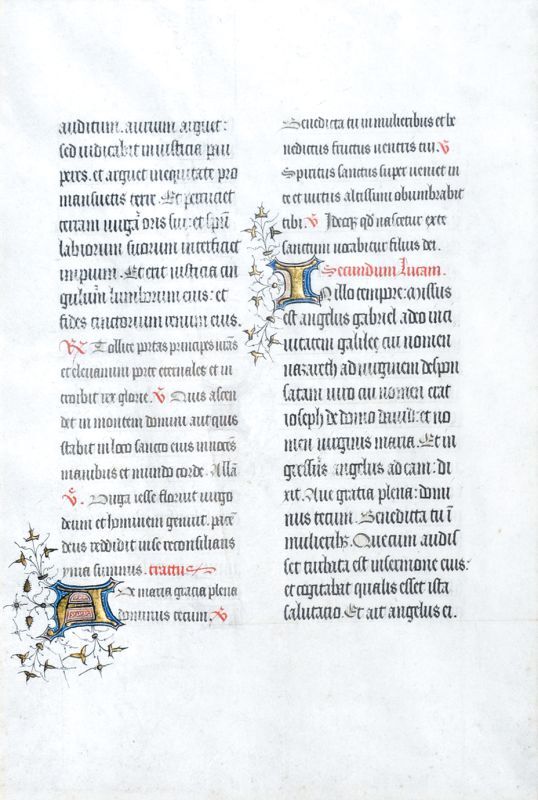 auditum aurium arguet:
sed iudicabit iniusticia pau
peres. et arguet in equitate pro
mansuetis terre. Et percuciet
terram uirga oris sui: et spū
labiorum suorum interficiet
impium. Et erit iusticia cin
gulum lumborum eius: et
fides cinctorium renum eius.
R Tollite portas principes urās
et eleuamini porte eternales et in
troibit rex glorie. V Quis ascen
det in montem domini aut quis
stabit in loco sancto eius innocēs
manibus et mundo corde. Allā
V. Uirga iesse floruit uirgo
deum et hominem genuit. pacē
deus reddidit in se reconsilians
yma summis. tractus
Aue maria gracia plena
dominus tecum. V
Benedicta tu in mulieribus et be
nedictus fructus uentris tui. V
Spiritus sanctus super ueniet in
te et uirtus altissimi obumbrabit
tibi. V Ideoq; qd nascetur ex te
sanctum uocabitur filius dei.
Secundum Lucam.
In illo tempore: Missus
est angelus gabriel a deo in ci
uitatem galilee cui nomen
nazareth ad uirginem despon
satam uiro cui nomen erat
ioseph de domo dauid: et no
men uirginis maria. Et in
gressus angelus ad eam: di
xit. Aue gratia plena: domi
nus tecum. Benedicta tu ī
mulieribs. Que cum audis
set turbata est in sermone eius:
et cogitabat qualis esset ista
salutatio. Et ait angelus ei.